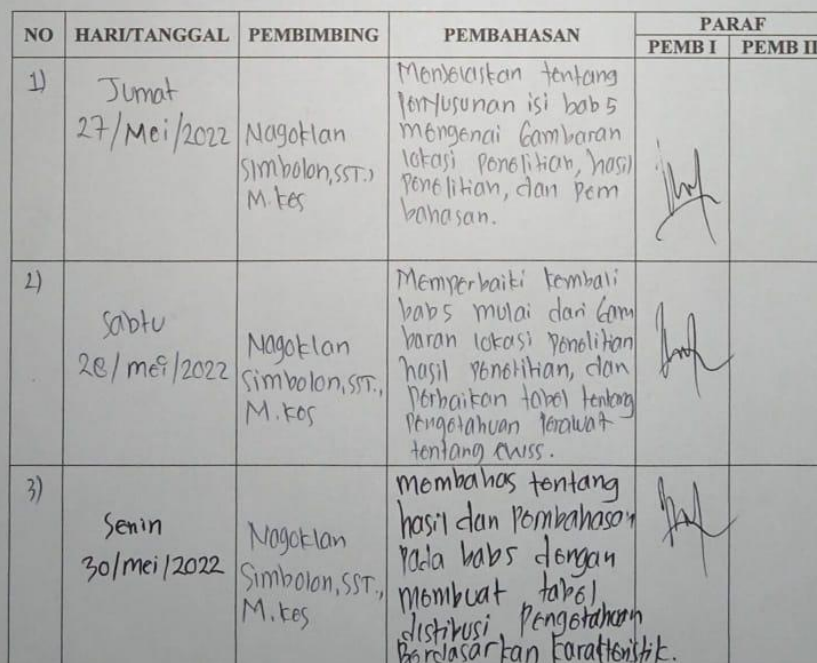 NO HARI/TANGGAL PEMBIMBING PEMBAHASAN PARAF
PEMB I PEMB II
1) Jumat
27/Mei/2022
Nagoklan
Simbolon,SST.,
M.kes
Menjelaskan tentang
Penyusunan isi bab 5
mengenai Gambaran
lokasi penelitian, hasil
penelitian, dan pem
bahasan.
2) Sabtu
28/mei/2022
Nagoklan
Simbolon,SST.,
M.kes
Memperbaiki kembali
bab5 mulai dari Gam
baran lokasi penelitian
hasil penelitian, dan
perbaikan tabel tentang
Pengetahuan perawat
tentang ewss.
3) Senin
30/mei/2022
Nagoklan
Simbolon,SST.,
M.kes
membahas tentang
hasil dan Pembahasan
pada bab5 dengan
membuat tabel
distibusi Pengetahuan
Berdasarkan karakteristik.